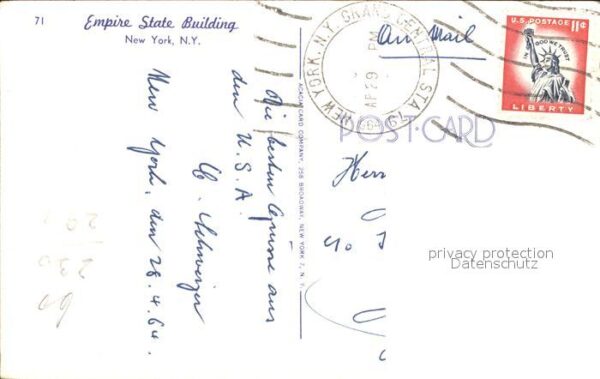 71
Empire State Building
New York, N.Y.
New York, den 28.4.64.
Die besten Grüsse aus
den U.S.A.
Schweizer
ACACIA CARD COMPANY, 258 BROADWAY, NEW YORK 7, N. Y.
POST CARD
Air Mail
NEW YORK, N.Y. GRAND CENTRAL STA.
PM
AP 29
1964
U.S. POSTAGE 11¢
IN GOD WE TRUST
LIBERTY
Herrn
privacy protection
Datenschutz
230
60